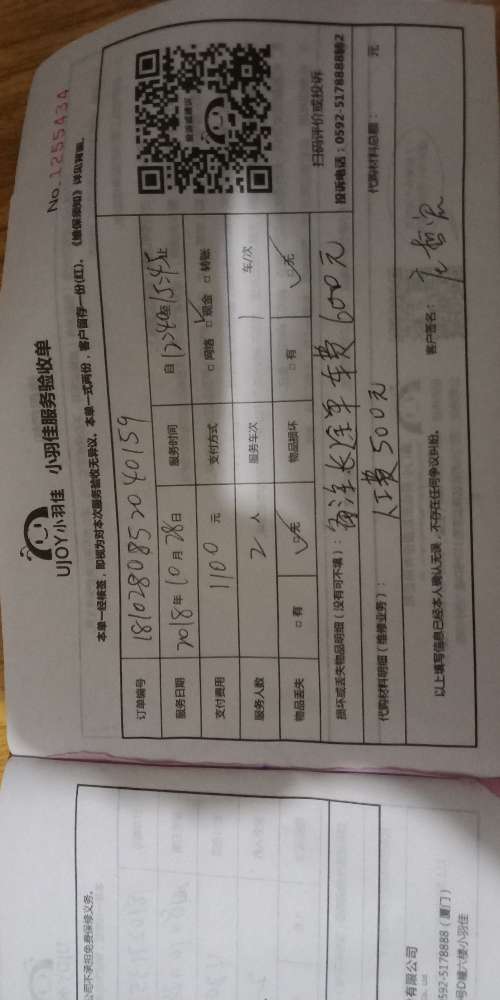 No.1255434
UJOY小羽佳 小羽佳服务验收单
本单一经核签，即视为对本次服务验收无异议，本单一式两份，客户留存一份(红)，《维保须知》详见背面。
订单编号 18102808520 40159
服务日期 2018年10月28日 服务时间 自13>40至15>45止
支付费用 1100 元 支付方式 □网络 □现金 □转账
服务人数 2 人 服务车次 1 车/次
物品丢失 □有 □无 物品损坏 □有 □无
损坏或丢失物品明细（没有可不填）：备注长途单 车费600元
代购材料明细（维修业务）： 人工费500元 代购材料总额： 元
以上填写信息已经本人确认无误，不存在任何争议纠纷。 客户签名：
扫码评价或投诉
投诉电话：0592-5178888转2
公司不承担免费保修义务。
有限公司
592-5178888（厦门）
号D幢六楼小羽佳